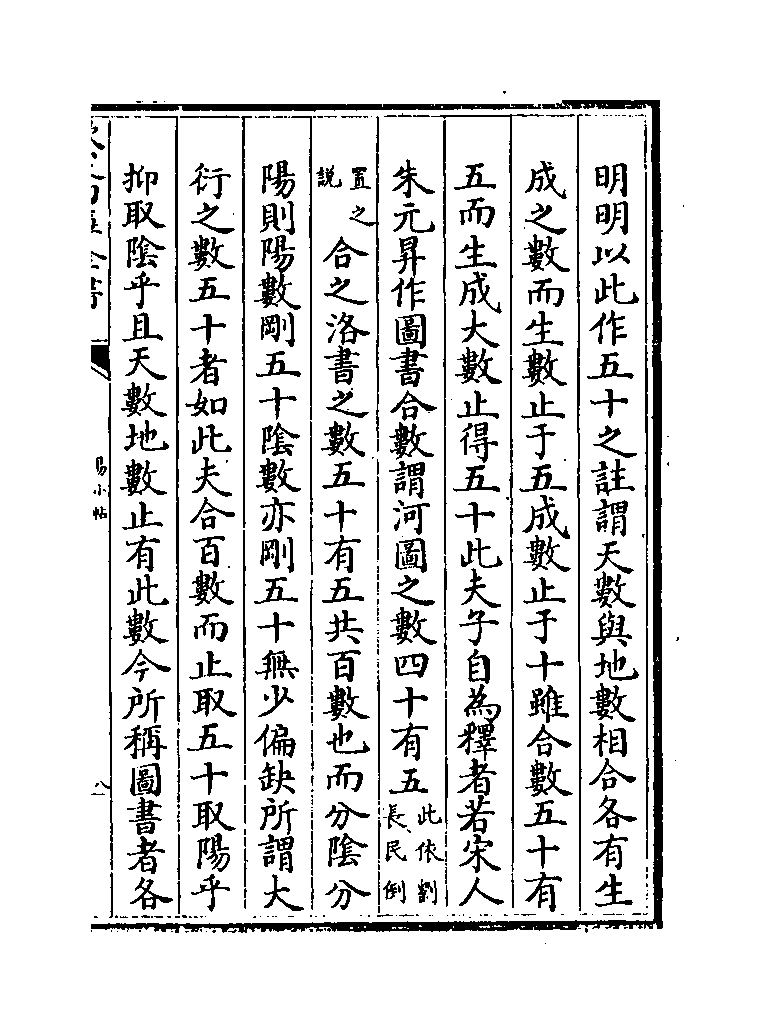 明明以此作五十之註謂天數與地數相合各有生
成之數而生數止于五成數止于十雖合數五十有
五而生成大數止得五十此夫子自為釋者若宋人
朱元昇作圖書合數謂河圖之數四十有五此依劉長民倒
置之說合之洛書之數五十有五共百數也而分陰分
陽則陽數剛五十陰數亦剛五十無少偏缺所謂大
衍之數五十者如此夫合百數而止取五十取陽乎
抑取陰乎且天數地數止有此數今所稱圖書者各
易小帖
八